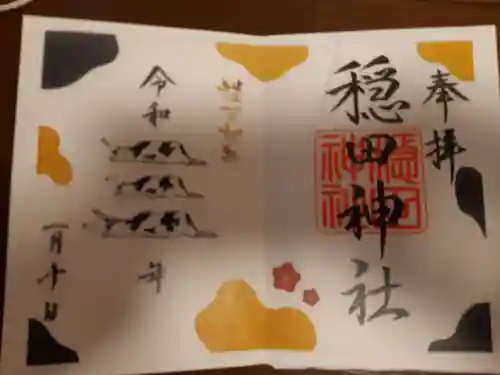 奉拝
穏田神社
穏田神社
令和
年
一月十日